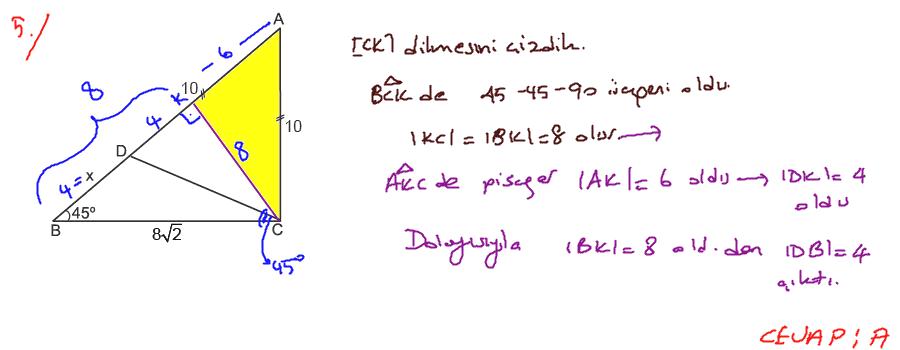 5./
A
6
10
8
K
4
10
D
8
4 = x
45°
B
8√2
C
45°
[CK] dikmesini çizdik.
BCK de 45-45-90 üçgeni oldu.
|KC| = |BK| = 8 olur →
AKC de pisagor |AK| = 6 oldu → |DK| = 4 oldu
Dolayısıyla |BK| = 8 old. den |DB| = 4 çıktı.
CEVAP: A